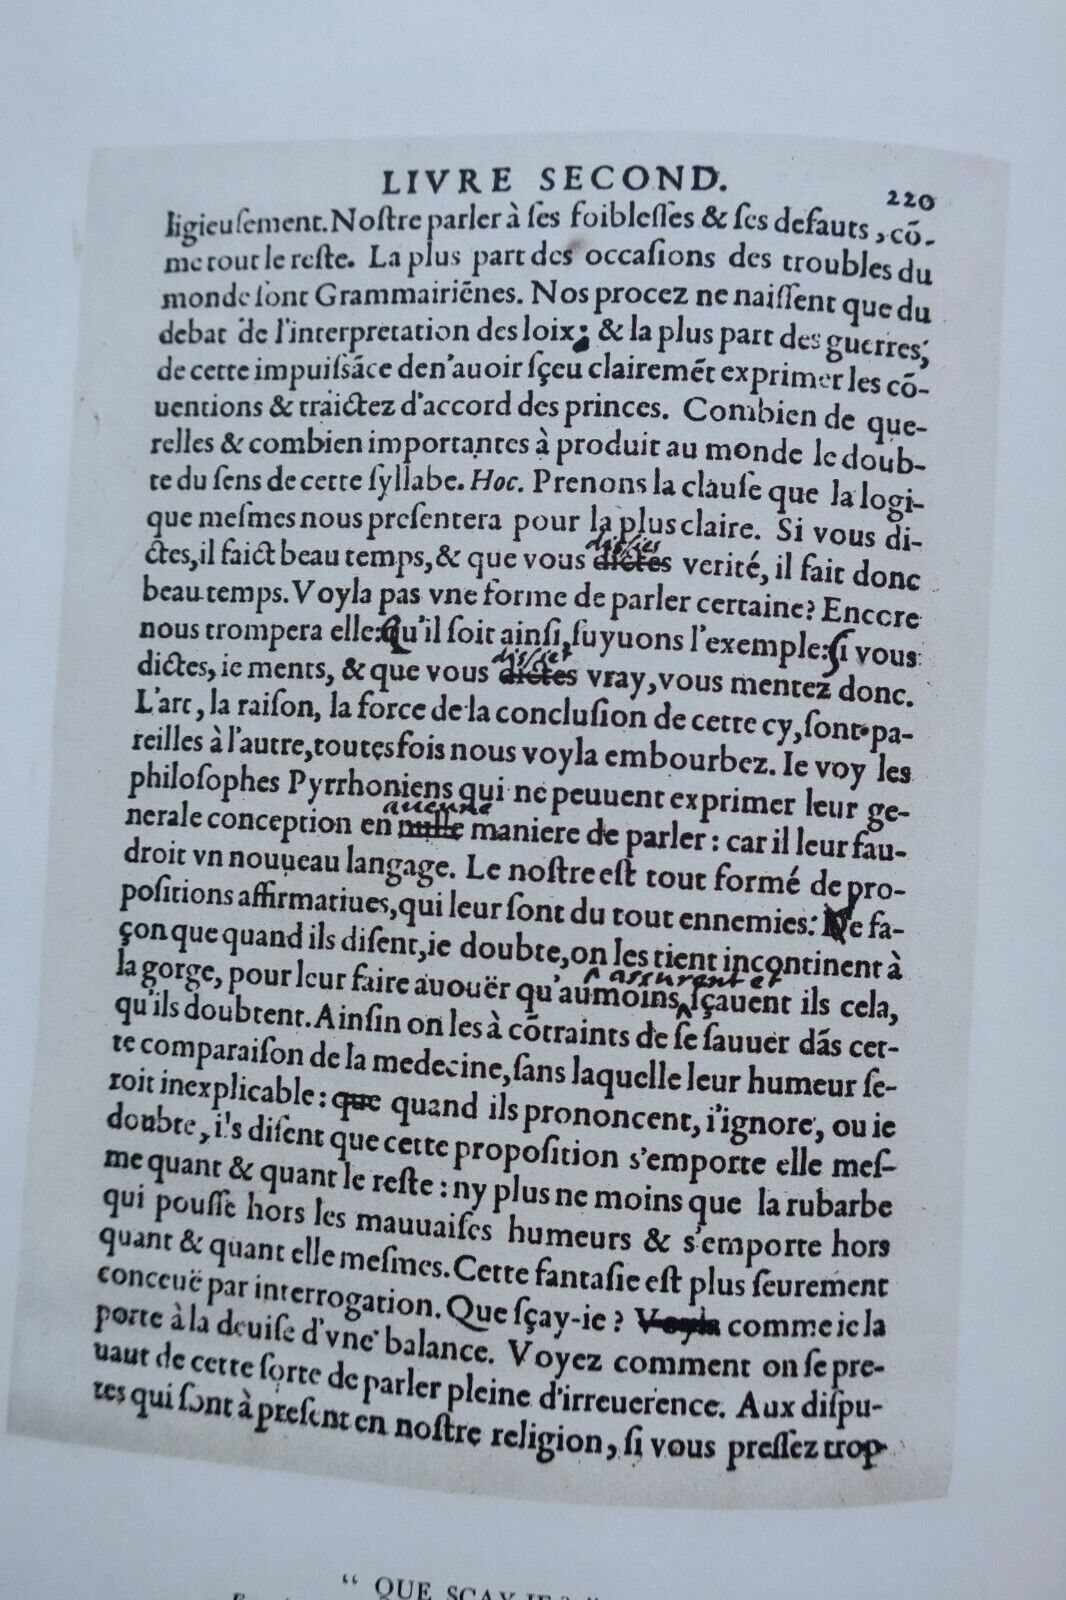 LIVRE SECOND.
220
ligieuſement. Noſtre parler à ſes foibleſſes & ſes defauts, cõ-
me tout le reſte. La plus part des occaſions des troubles du
monde ſont Grammairiẽnes. Nos procez ne naiſſent que du
debat de l'interpretation des loix; & la plus part des guerres,
de cette impuiſsãce de n'auoir ſçeu clairemẽt exprimer les cõ-
uentions & traictez d'accord des princes. Combien de que-
relles & combien importantes à produit au monde le doub-
te du ſens de cette ſyllabe. Hoc. Prenons la clauſe que la logi-
que meſmes nous preſentera pour la plus claire. Si vous di-
dissies
ctes, il faict beau temps, & que vous dictes verité, il fait donc
beau temps. Voyla pas vne forme de parler certaine? Encore
nous trompera elle: Qu'il ſoit ainſi, ſuyuons l'exemple: Si vous
dissiet
dictes, ie ments, & que vous dictes vray, vous mentez donc.
L'art, la raiſon, la force de la concluſion de cette cy, ſont pa-
reilles à l'autre, toutesfois nous voyla embourbez. Ie voy les
philoſophes Pyrrhoniens qui ne peuuent exprimer leur ge-
aucune
nerale conception en nulle maniere de parler: car il leur fau-
droit vn nouueau langage. Le noſtre eſt tout formé de pro-
poſitions affirmatiues, qui leur ſont du tout ennemies: De fa-
çon que quand ils diſent, ie doubte, on les tient incontinent à
assurent et
la gorge, pour leur faire auouër qu'aumoins ſçauent ils cela,
qu'ils doubtent. Ainſin on les à cõtraints de ſe ſauuer dãs cet-
te comparaiſon de la medecine, ſans laquelle leur humeur ſe-
roit inexplicable: que quand ils prononcent, i'ignore, ou ie
doubte, ils diſent que cette propoſition s'emporte elle meſ-
me quant & quant le reſte: ny plus ne moins que la rubarbe
qui pouſſe hors les mauuaiſes humeurs & s'emporte hors
quant & quant elle meſmes. Cette fantaſie eſt plus ſeurement
conceuë par interrogation. Que ſçay-ie? Voyla comme ie la
porte à la deuiſe d'vne balance. Voyez comment on ſe pre-
uaut de cette ſorte de parler pleine d'irreuerence. Aux diſpu-
tes qui ſont à preſent en noſtre religion, ſi vous preſſez trop
“ QUE SCAY-JE ? ”